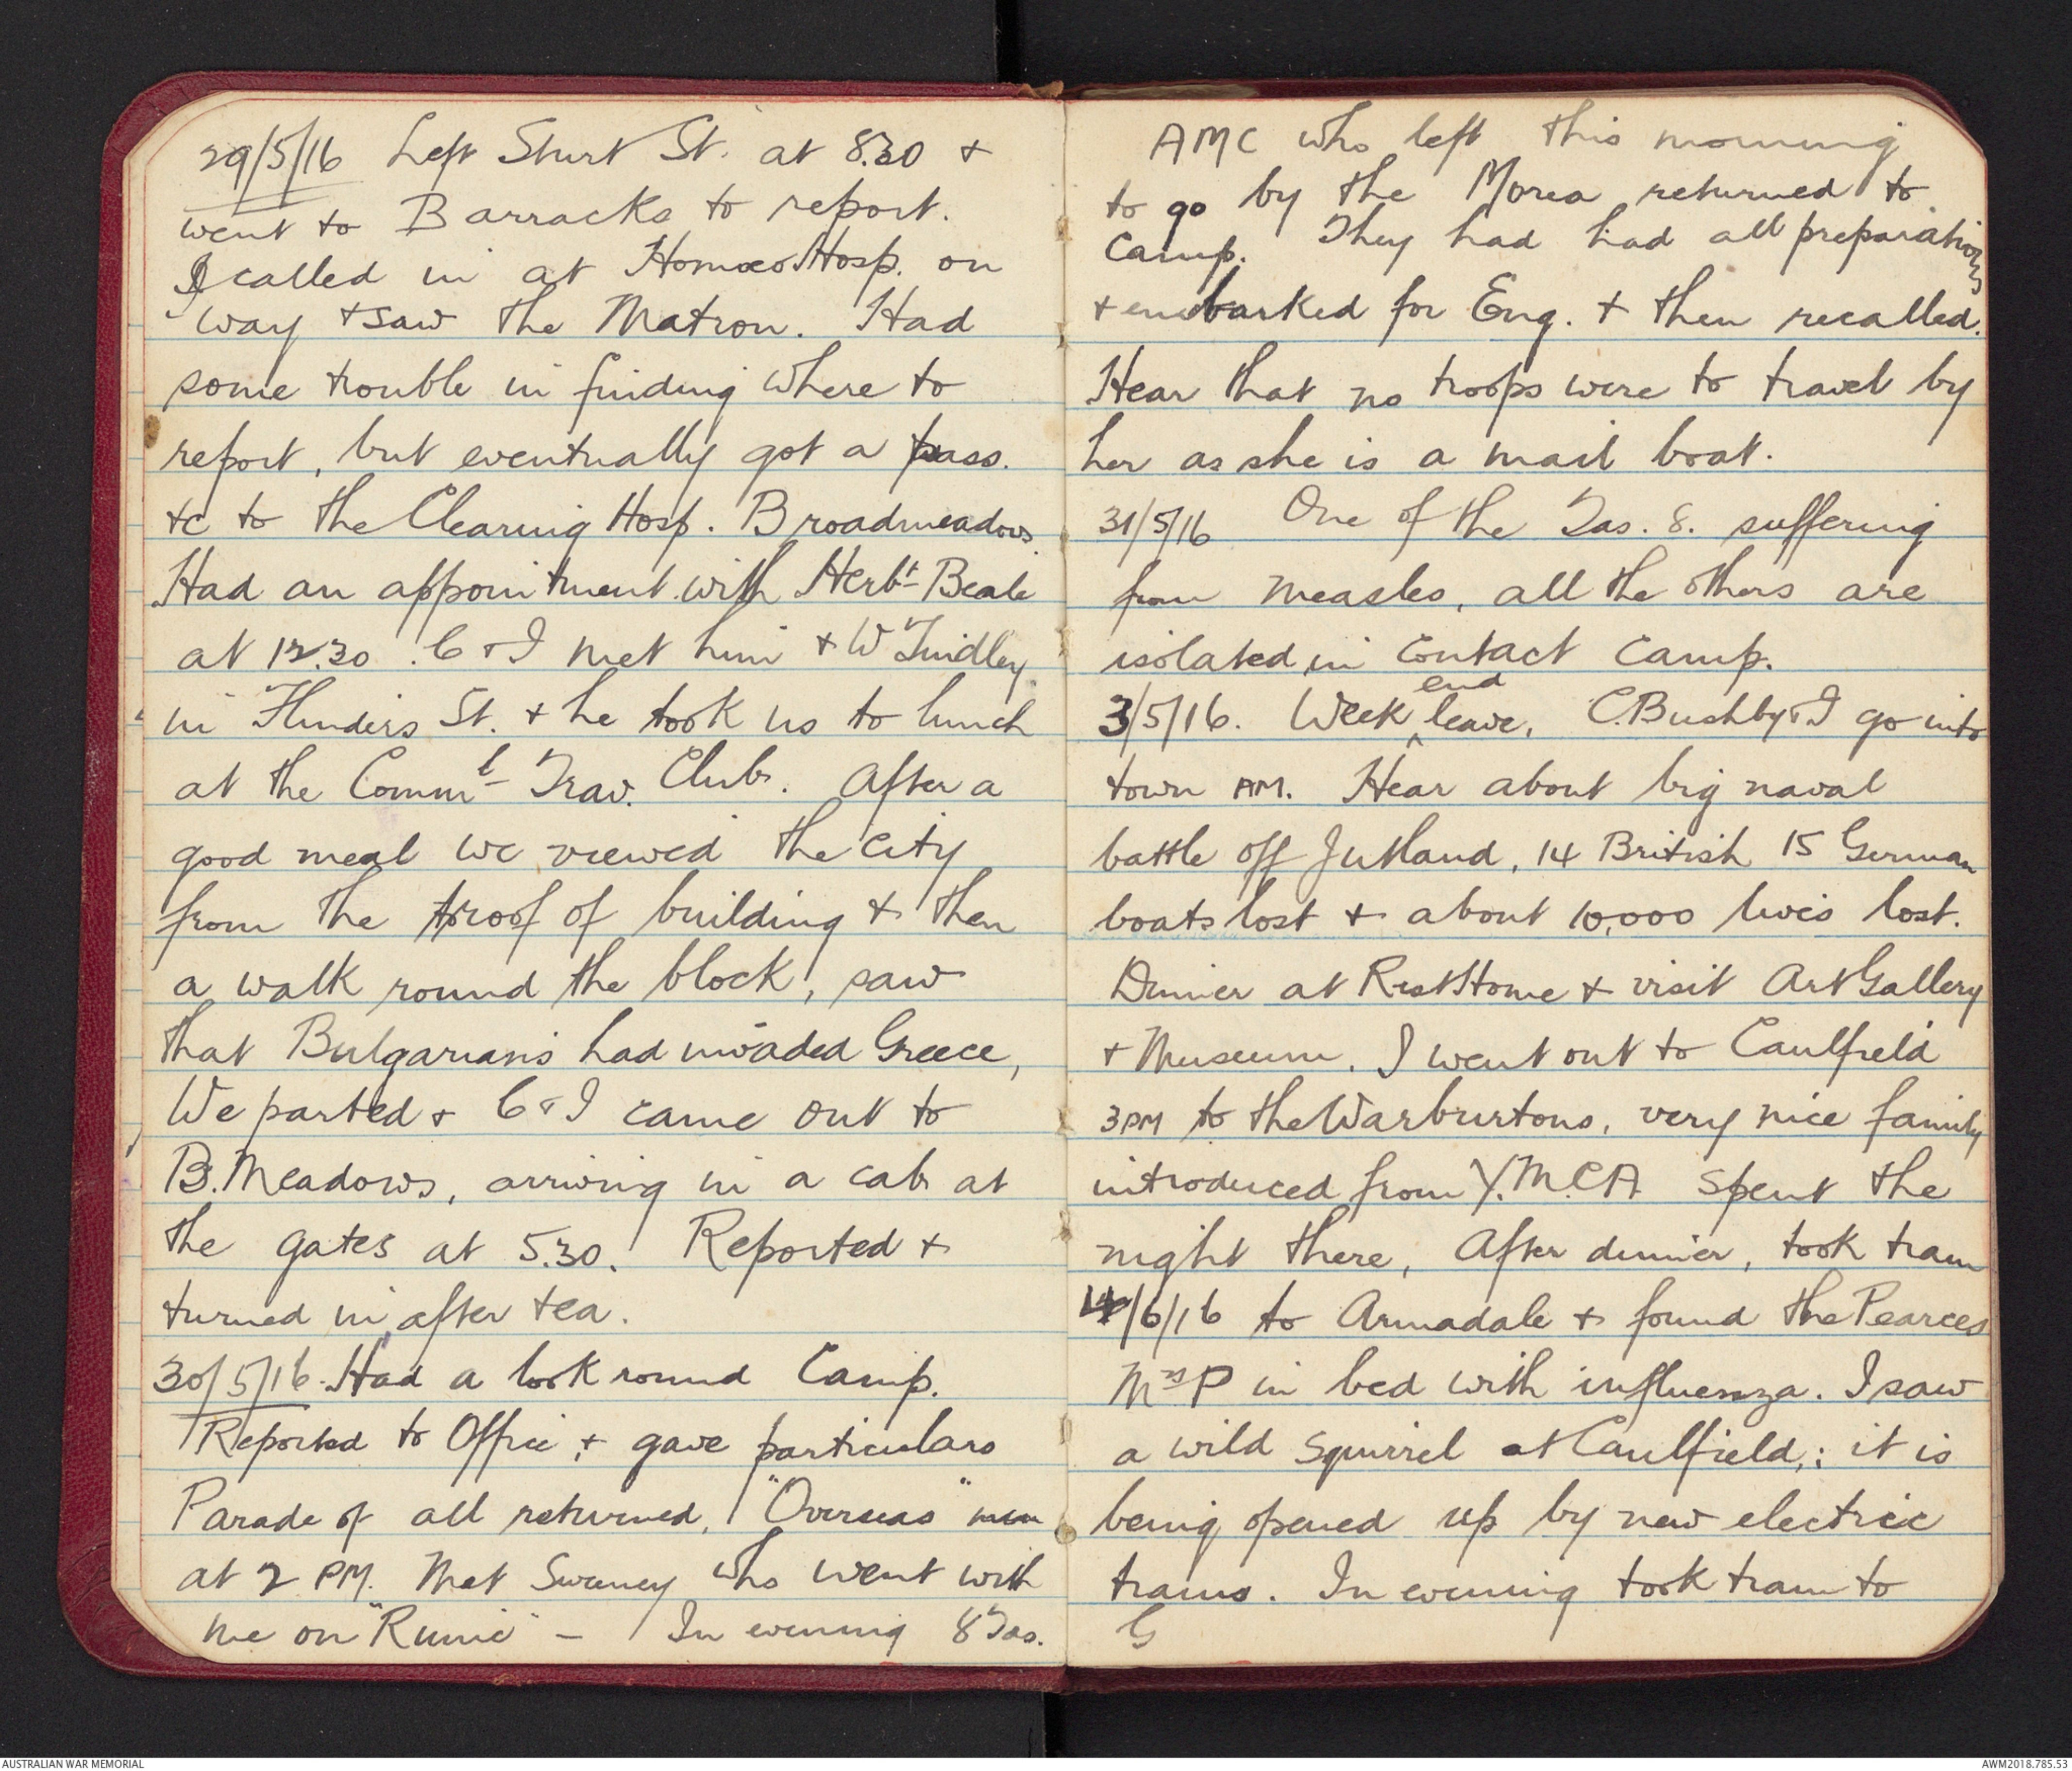 29/5/16 Left Sturt St. at 8.30 +
went to Barracks to report.
I called in at HomœoHosp. on
way + saw the Matron. Had
some trouble in finding where to
report, but eventually got a pass.
+c to the Clearing Hosp. Broadmeadows.
Had an appointment with Herbt Beale
at 12.30. C + I met him + W Lindley
in Flinders St. + he took us to lunch
at the Comml Trav. Club. After a
good meal we viewed the city
from the roof of building + then
a walk round the block, saw
that Bulgarians had invaded Greece,
We parted + C + I came out to
B. Meadows, arriving in a cab at
the gates at 5.30. Reported +
turned in after tea.
30/5/16. Had a look round Camp.
Reported to Office + gave particulars
Parade of all returned, "Overseas" men
at 2 PM. Met Sweeney who went with
me on "Runic" - In evening 8 Tas.
AMC who left this morning
to go by the Morea returned to
Camp. They had had all preparations
+ embarked for Eng. + then recalled.
Hear that no troops were to travel by
her as she is a mail boat.
31/5/16 One of the Tas. 8. suffering
from measles, all the others are
isolated in contact camp.
3/5/16. Week end leave, C. Bushby + I go into
town AM. Hear about big naval
battle off Jutland, 14 British 15 German
boats lost + about 10,000 lives lost.
Dinner at Rest Home + visit Art Gallery
+ Museum. I went out to Caulfield
3PM to the Warburtons, very nice family
introduced from Y.M.C.A. Spent the
night there, After dinner, took tram
4/6/16 to Armadale + found the Pearces
Mrs P in bed with influenza. I saw
a wild squirrel at Caulfield,; it is
being opened up by new electric
trams. In evening took tram to
G
AUSTRALIAN WAR MEMORIAL
AWM2018.785.53